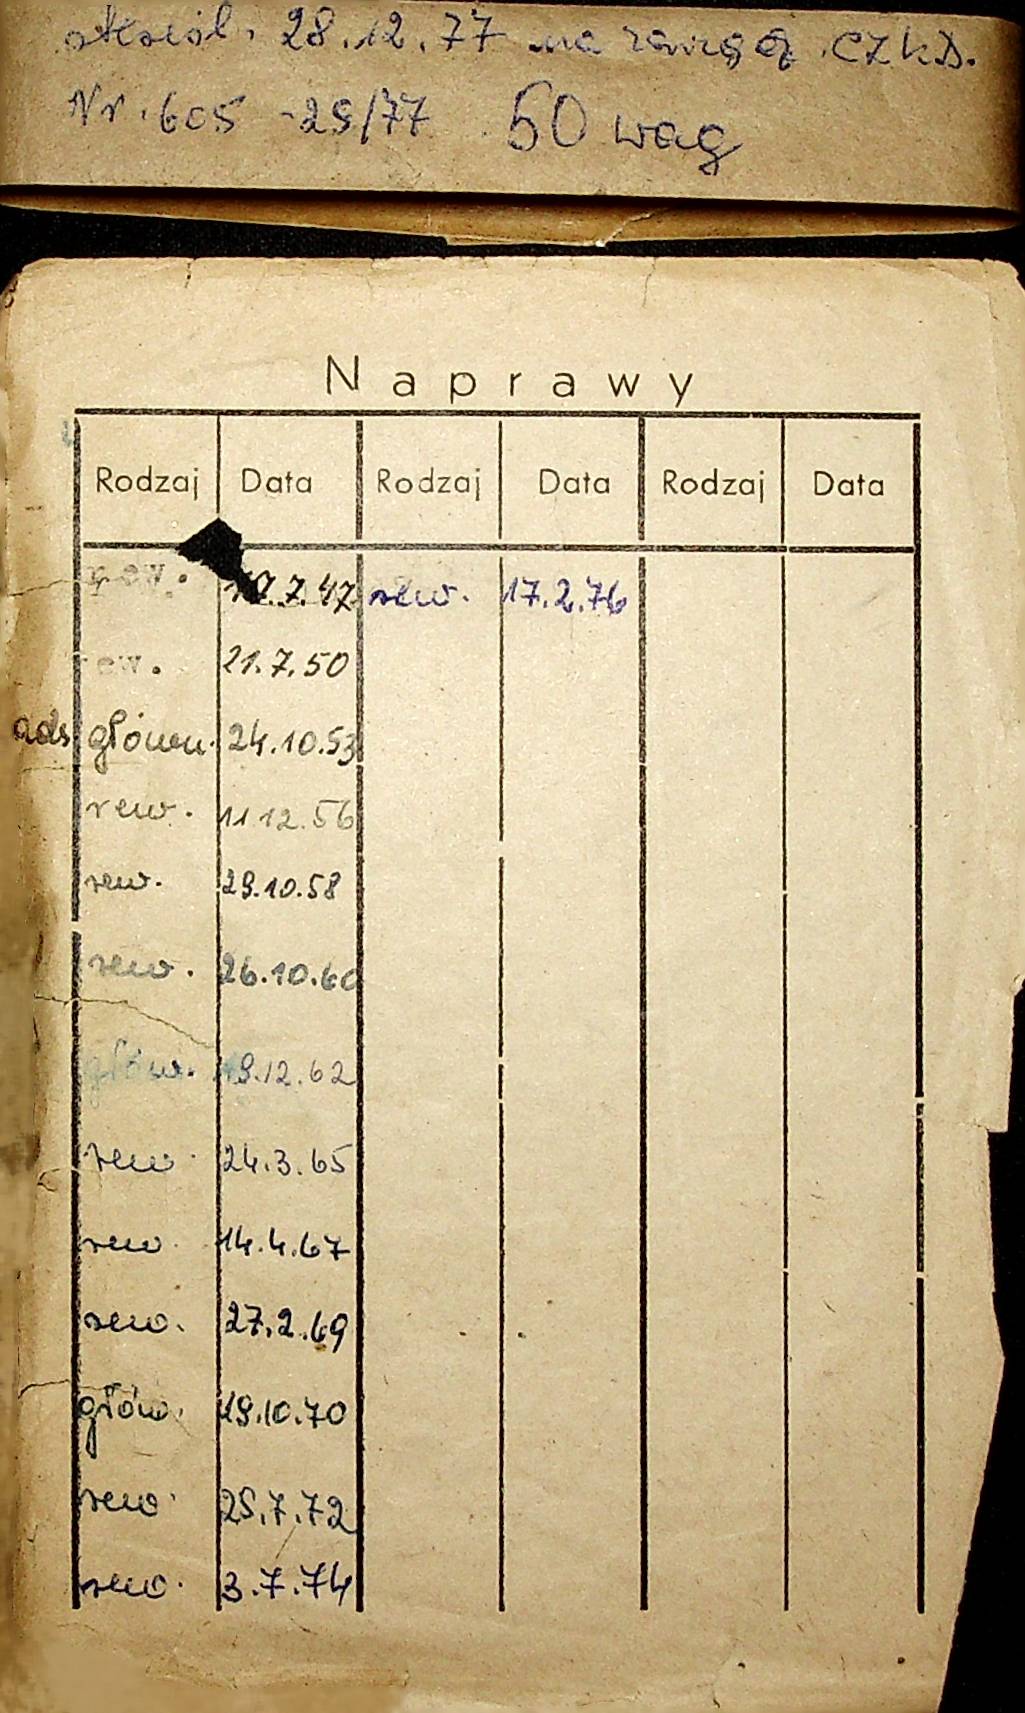 28.12.77 na CZKD.
Nr. 605 -25/77 50 wag
Naprawy
Rodzaj Data Rodzaj Data Rodzaj Data
rew. 7.47 rew. 17.2.76
rew. 21.7.50
główn. 24.10.53
rew. 11.12.56
rew. 29.10.58
rew. 26.10.60
głów. 19.12.62
rew. 24.3.65
rew. 14.4.67
rew. 27.2.69
głów. 19.10.70
rew. 25.7.72
rew. 3.7.74